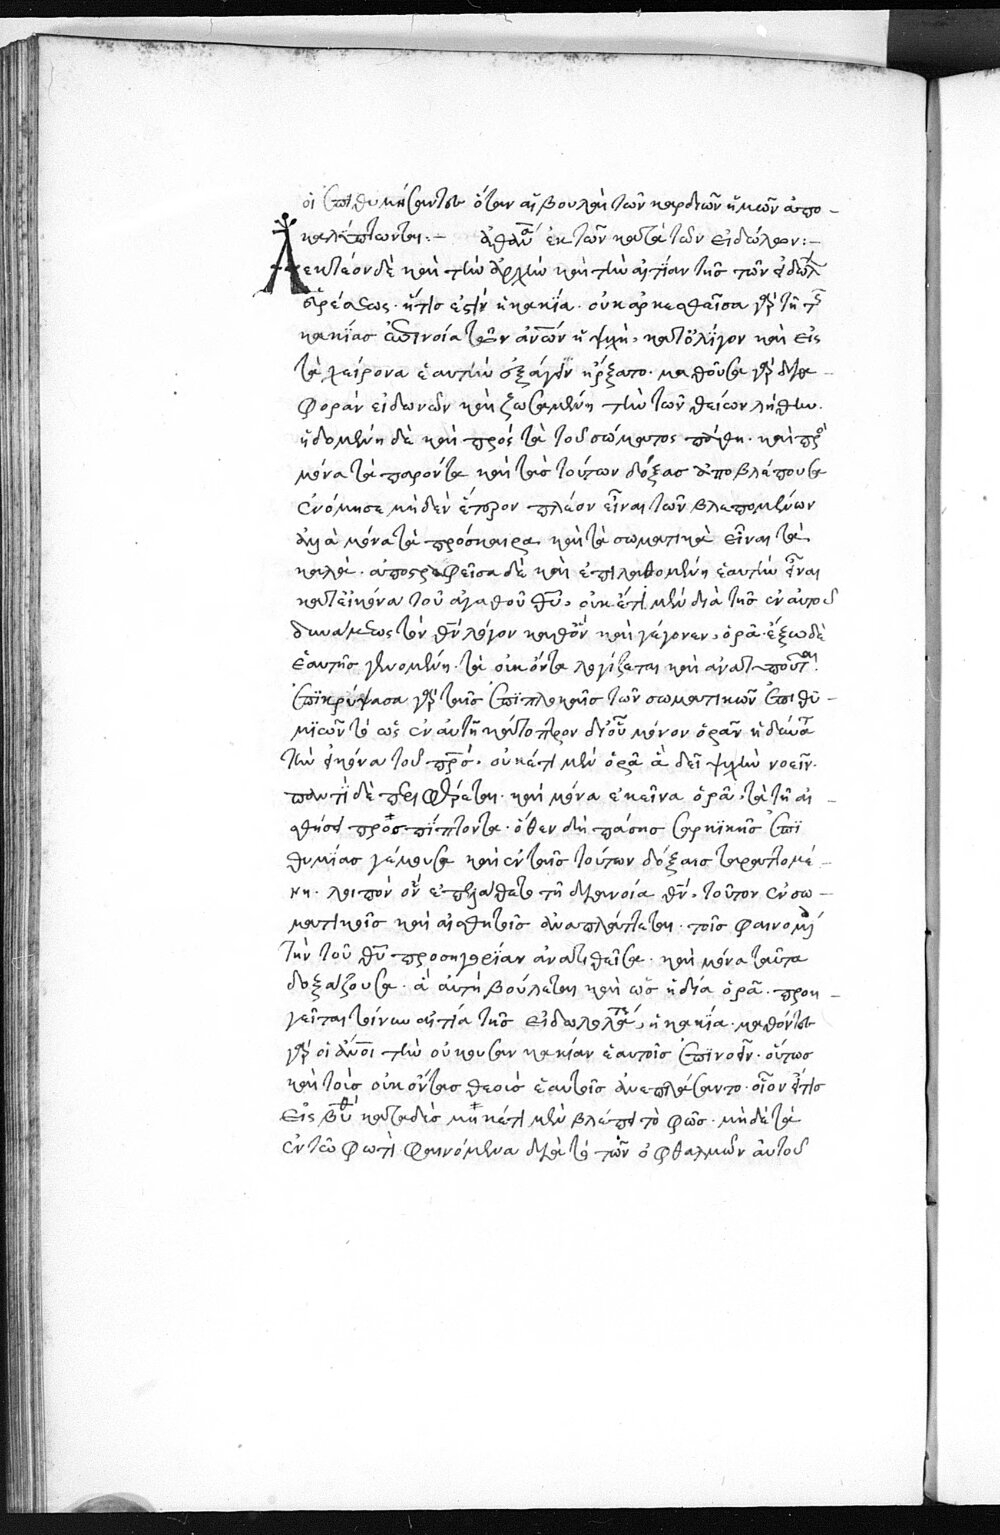 οἱ ἐπιθυμήσαντες ὅταν αἱ βουλαὶ τῶν καρδιῶν ἡμῶν ἀπο-
καλύπτωνται:- ἀθαν ἐκ τῶν κατὰ τῶν εἰδώλων:-
Λεκτέον δὲ καὶ τὴν ἀρχὴν καὶ τὴν αἰτίαν τῆς τῶν εἰδώλ
εὑρέσεως· ἥτις ἐστὶν ἡ κακία· οὐκ ἀρκεσθεῖσα γὰρ τῇ τῆς
κακίας ἐπινοία τῶν ἀνῶν ἡ ψυχὴ, κατ' ὀλίγον καὶ εἰς
τὰ χείρονα ἑαυτὴν ἐξάγειν ἤρξατο· μαθοῦσα γὰρ δια-
φορὰν εἰδωνῶν καὶ ζωσαμένη τὴν τῶν θείων λήθην·
ἡδομένη δὲ καὶ πρὸς τὰ τοῦ σώματος πάθη· καὶ πρὸς
μόνα τὰ παρόντα καὶ τὰς τούτων δόξας ἀποβλέπουσα
ἐνόμισε μηδὲν ἕτερον πλέον εἶναι τῶν βλεπομένων
ἀλλὰ μόνα τὰ πρόσκαιρα καὶ τὰ σωματικὰ εἶναι τὰ
καλά· ἀποστραφεῖσα δὲ καὶ ἐπιλαθομένη ἑαυτὴν εἶναι
κατ' εἰκόνα τοῦ ἀγαθοῦ θυ, οὐκ έτι μὲν διὰ τῆς ἐν αὐτοῦ
δυνάμεως τὸν θν λόγον καθ' ὃν καὶ γέγονεν, ὁρᾶ· ἔξω δὲ
ἑαυτῆς γινομένη· τὰ οὐκ ὄντα λογίζεται καὶ ἀνατυποῦται·
ἐπικρύψασα γὰρ ταῖς ἐπιπλοκαῖς τῶν σωματικῶν ἐπιθυ-
μιῶν τὸ ὡς ἐν αὐτῇ κάτοπτρον δι' οὗ μόνον ὁρᾶν ἠδύνατο
τὴν εἰκόνα τοῦ πρς, οὐκέτι μὲν ὁρᾶ ἃ δεῖ ψυχὴν νοεῖν·
παντὶ δὲ περιφέρεται· καὶ μόνα ἐκεῖνα ὁρᾶ, τὰ τῇ αἰ-
σθήσει προσπίπτοντα· ὅθεν δὴ πάσης σαρκικῆς ἐπι
θυμίας γέμουσα καὶ ἐν ταῖς τούτων δόξαις ταραττομέ-
νη· λοιπὸν ὃν ἐπελάθετο τῇ διανοία θν, τοῦτον ἐν σω-
ματικοῖς καὶ αἰσθητοῖς ἀναπλάττεται· τοῖς φαινομέ
τὴν τοῦ θυ προσηγορίαν ἀνατιθεῖσα· καὶ μόνα ταῦτα
δοξάζουσα· ἃ αὐτὴ βούλεται καὶ ὡς ἡδέα ὁρᾶ· προη-
γεῖται τοίνυν αἰτία τῆς εἰδωλολατ, ἡ κακία· μαθόντες
γὰρ οἱ ἀνοι τὴν οὐκ οὖσαν κακίαν ἑαυτοῖς ἐπινοεῖν· οὕτως
καὶ τοὺς οὐκ ὄντας θεοὺς ἑαυτοῖς ἀνεπλάσαντο· οἷον εἴ τις
εἰς βυθ καταδὺς μηκέτι μὲν βλέπει τὸ φῶς· μηδὲ τὰ
ἐν τῶ φωτὶ φαινόμενα διὰ τὸ τῶν ὀφθαλμῶν αὐτοῦ